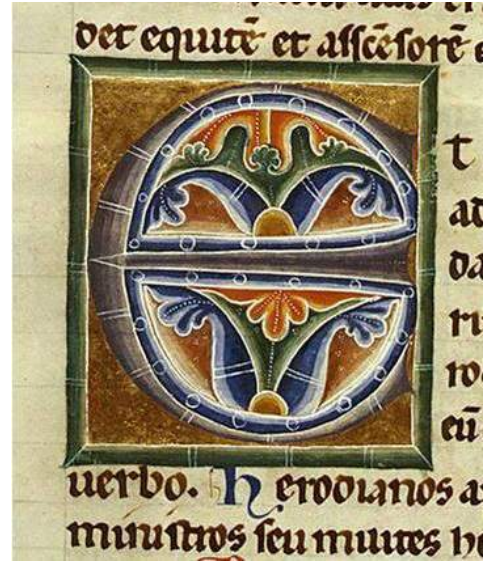 det equitē et assceſorē e
E t
ad
da
ri
ro
eū
uerbo. herodianos a
miniſtros ſeu milites he